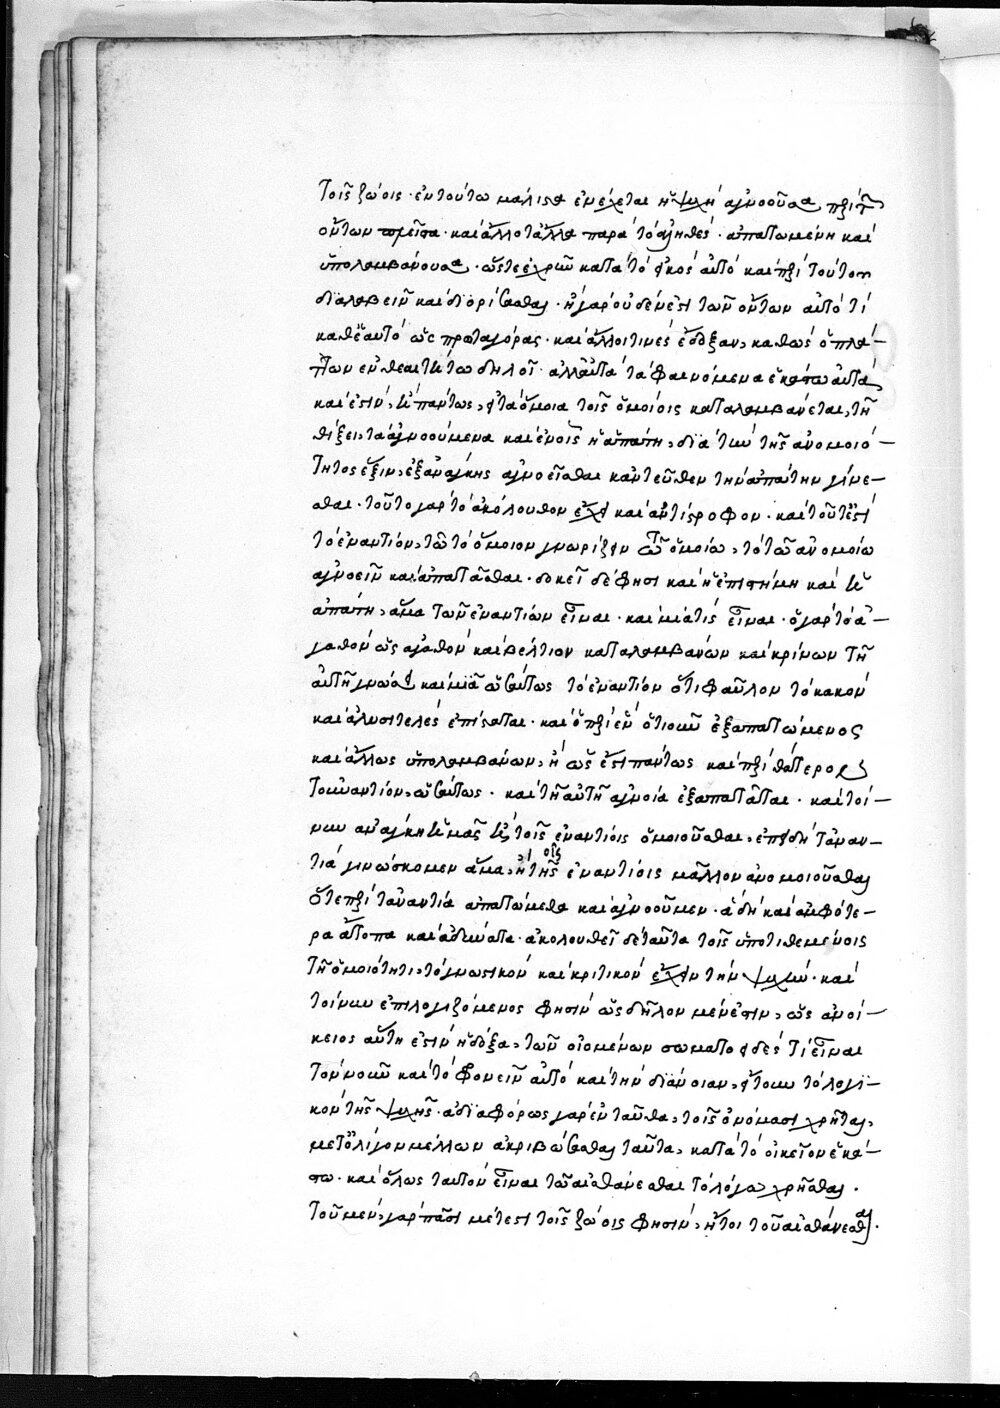 τοῖς ζώοις· ἐν τούτω μάλιστα ἐνέχεται ἡ ψυχὴ ἀγνοοῦσα περὶ τῶν
ὄντων πλεῖστα· καὶ ἄλλοτ' ἄλλα παρὰ τὸ ἀληθές· ἀπατωμένη καὶ
ὑπολαμβάνουσα· ὥστε ἐχρῆν κατὰ τὸ εἰκὸς αὐτὸ καὶ περὶ τούτου
διαλαβεῖν καὶ διορίσασθαι· εἰ γὰρ οὐδέν ἐστι τῶν ὄντων αὐτό τι
καθ' ἑαυτὸ ὡς πρωταγόρας· καὶ ἄλλοι τινὲς ἔδοξαν, καθὼς ὁ πλά-
των ἐν θεαιτήτω δηλοῖ· ἀλλ' αὐτὰ τὰ φαινόμενα ἑκάστω αὐτὰ
καὶ ἐστὶν, ἢ πάντως, εἰ τὰ ὅμοια τοῖς ὁμοίοις καταλαμβάνεται, τῆ
θίξει, τὰ ἀγνοούμενα καὶ ἐν οἷς ἡ ἀπάτη, διὰ τὴν τῆς ἀνομοιό-
τητος ἕξιν, ἐξ ἀνάγκης ἀγνοεῖσθαι κἀντεῦθεν τὴν ἀπάτην γίνε-
σθαι· τοῦτο γὰρ τὸ ἀκόλουθον ἔχει καὶ ἀντίστροφον· καὶ τοῦτ' ἐστὶ
τὸ ἐναντίον, τῶ τὸ ὅμοιον γνωρίζειν τῶ ὁμοίω, τὸ τῶ ἀνομοίω
ἀγνοεῖν καὶ ἀπατᾶσθαι· δοκεῖ δέ φησι καὶ ἡ ἐπιστήμη καὶ ἡ
ἀπάτη, ἅμα τῶν ἐναντίων εἶναι· καὶ μία τίς εἶναι· ὁ γὰρ τὸ ἀ-
γαθὸν ὡς ἀγαθὸν καὶ βέλτιον καταλαμβάνων καὶ κρίνων τῆ
αὐτῆ γνώσει καὶ μιᾶ ὡσαύτως τὸ ἐναντίον ὅτι φαῦλον τὸ κακὸν
καὶ ἀλυσιτελὲς ἐπίσταται· καὶ ὁ περὶ ἓν ὁτιοῦν ἐξαπατώμενος
καὶ ἄλλως ὑπολαμβάνων, ἢ ὡς ἔστι πάντως καὶ περὶ θάτερον
τοὐναντίον, ὡσαύτως· καὶ τῆ αὐτῆ ἀγνοία ἐξαπατᾶται· καὶ τοί-
νυν ἀνάγκη ἡμᾶς ἢ τοῖς ἐναντίοις ὁμοιοῦσθαι, ἐπειδὴ τἀναν-
τία γινώσκομεν ἅμα, ἢ τῆς οῖς ἐναντίοις μᾶλλον ἀνομοιοῦσθαι
ὅτε περὶ τἀναντία ἀπατώμεθα καὶ ἀγνοοῦμεν· ἃ δὴ καὶ ἀμφότε-
ρα ἄτοπα καὶ ἀδύνατα· ἀκολουθεῖ δὲ ταῦτα τοῖς ὑποτιθεμένοις
τῆ ὁμοιότητι, τὸ γνωστικὸν καὶ κριτικὸν ἔχειν τὴν ψυχήν· καὶ
τοίνυν ἐπιλογιζόμενος φησὶν ὡς δῆλον μέν ἐστιν, ὡς ἀνοί-
κειος αὕτη ἐστὶν ἡ δόξα, τῶν οἰομένων σωματοειδές τι εἶναι
τὸν νοῦν καὶ τὸ φρονεῖν αὐτὸ καὶ τὴν διάνοιαν, ἤτουν τὸ λογι-
κὸν τῆς ψυχῆς· ἀδιαφόρως γὰρ ἐνταῦθα, τοῖς ὀνόμασι χρῆται,
μετ' ὀλίγον μέλλων ἀκριβώσασθαι ταῦτα, κατὰ τὸ οἰκεῖον ἑκά-
στω· καὶ ὅλως ταυτὸν εἶναι τῶ αἰσθάνεσθαι τὸ λόγω χρῆσθαι·
τοῦ μὲν, γὰρ πᾶσι μέτεστι τοῖς ζώοις φησὶν, ἤτοι τοῦ αἰσθάνεσθαι·